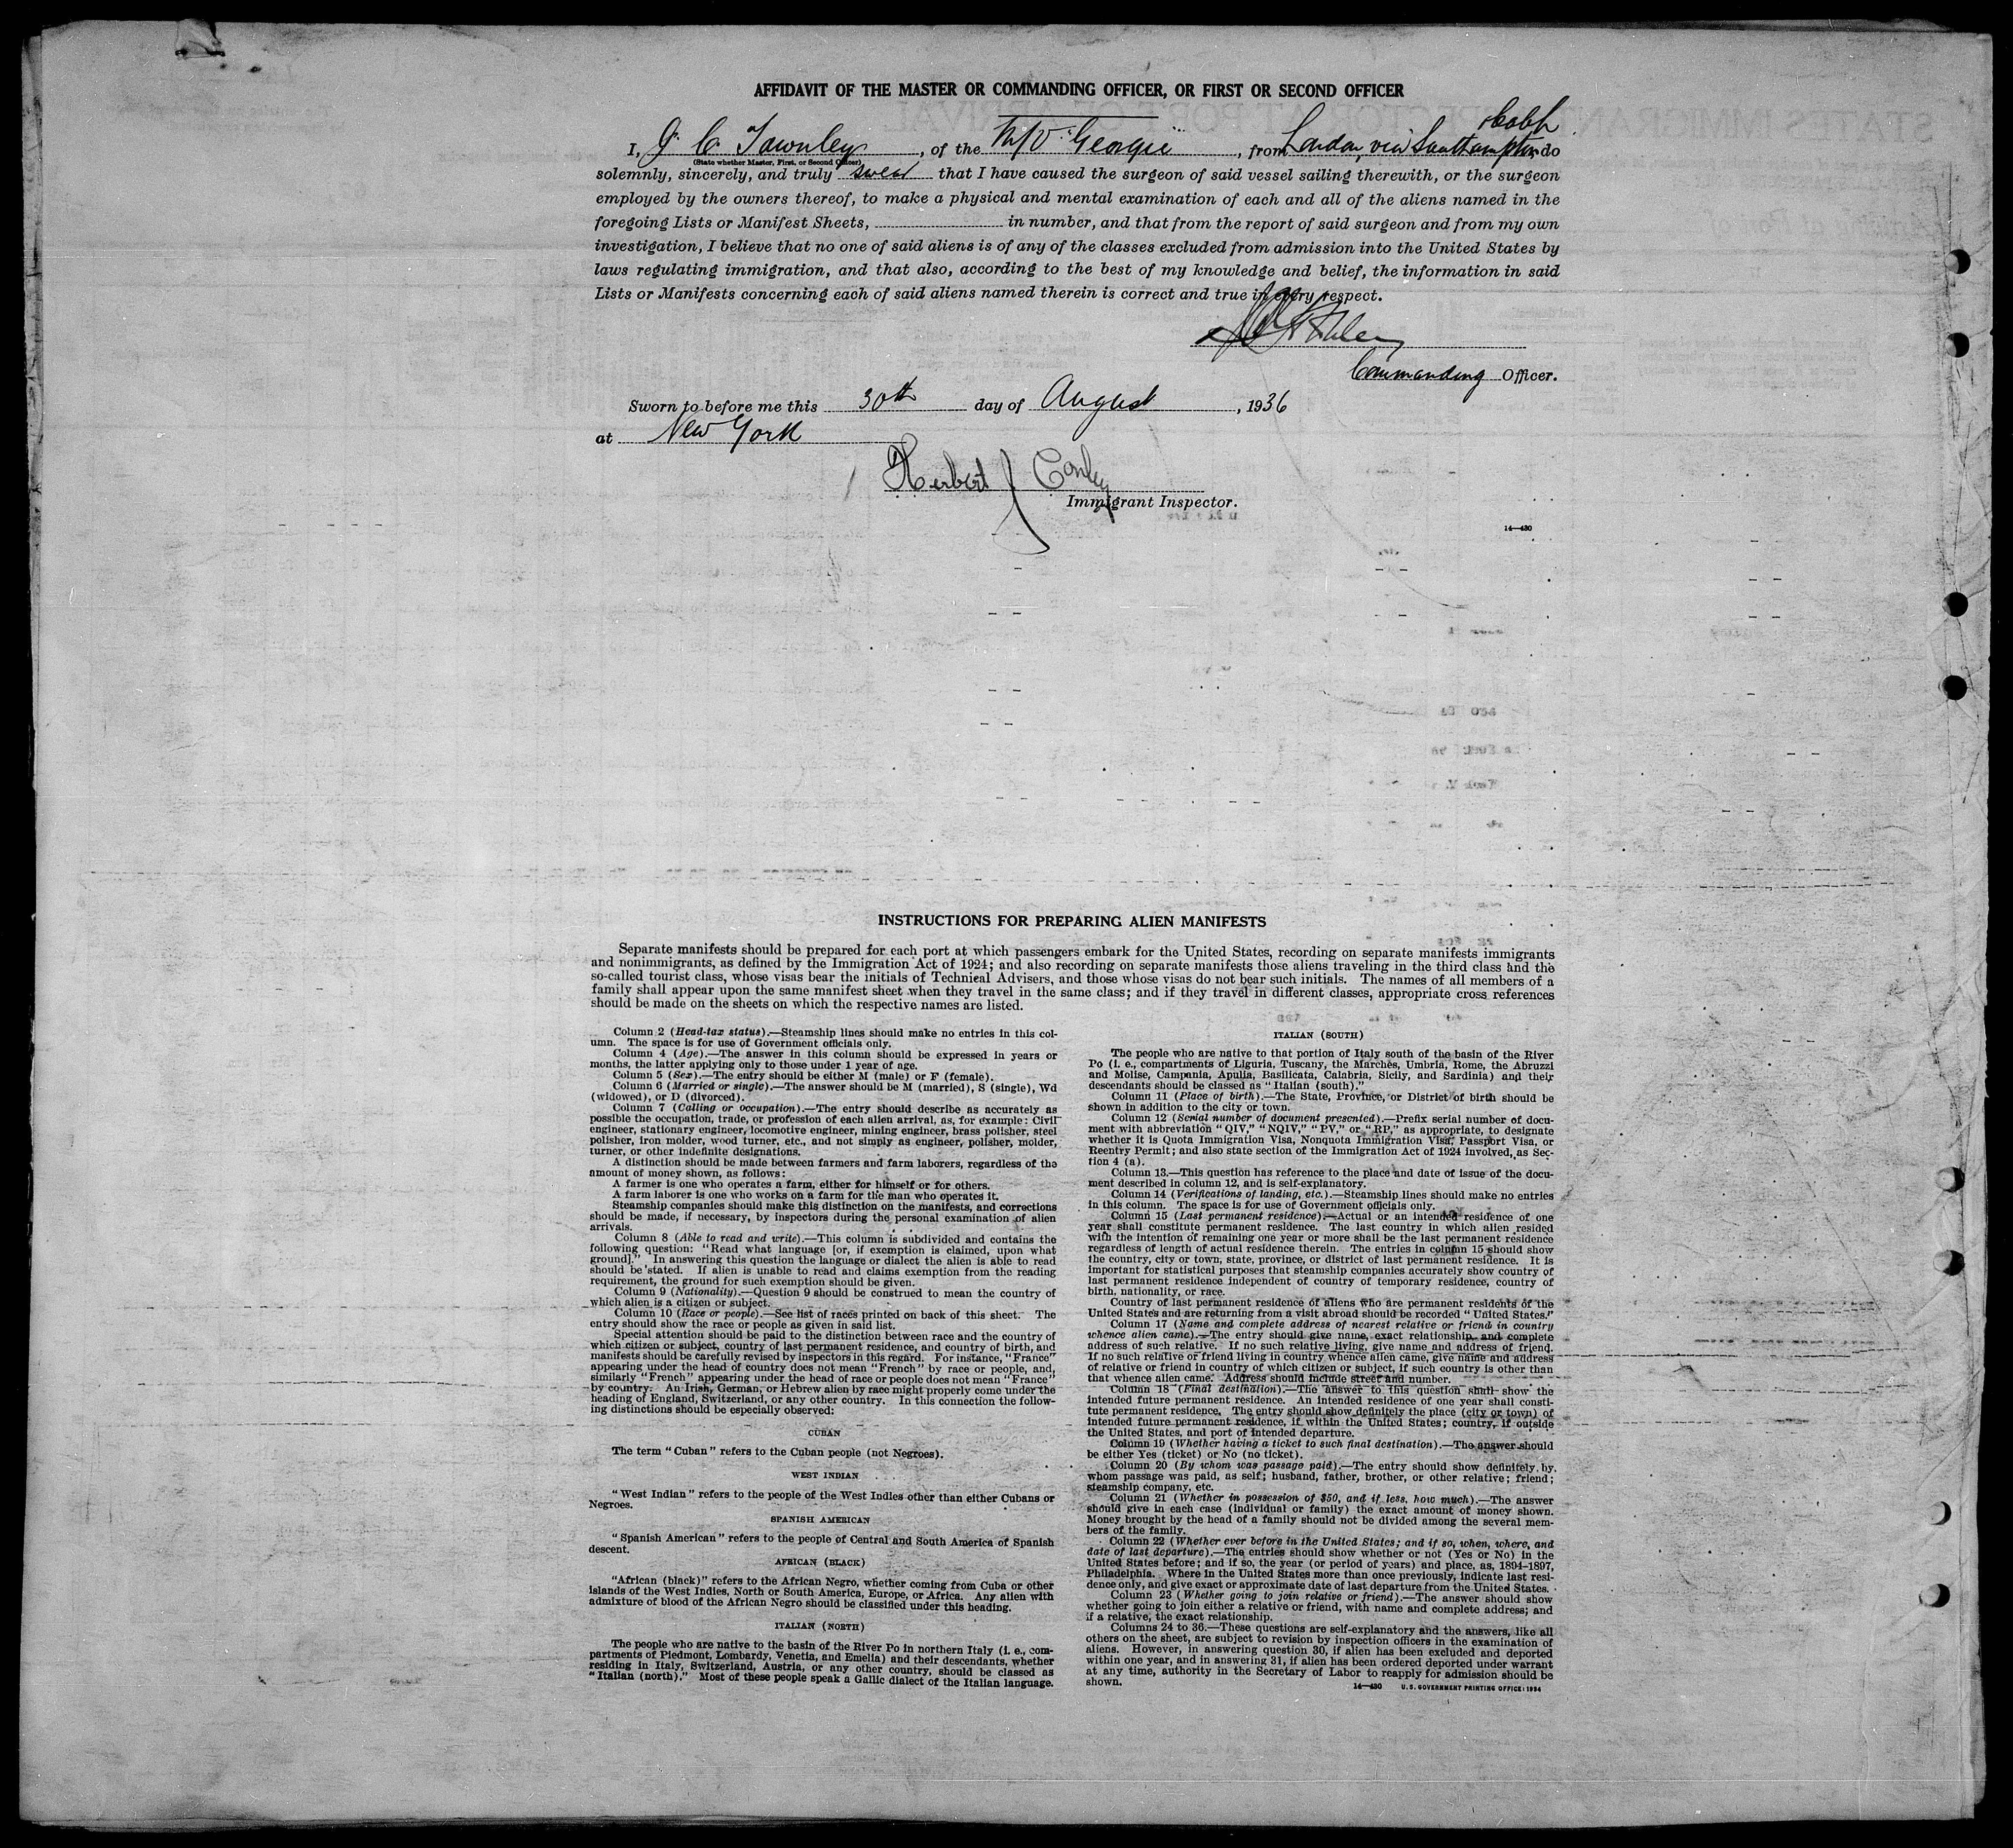 AFFIDAVIT OF THE MASTER OR COMMANDING OFFICER, OR FIRST OR SECOND OFFICER
Cobh
I, J C Townley, of the M/V "Georgic", from London, via Southampton do
(State whether Master, First, or Second Officer)
solemnly, sincerely, and truly swear that I have caused the surgeon of said vessel sailing therewith, or the surgeon
employed by the owners thereof, to make a physical and mental examination of each and all of the aliens named in the
foregoing Lists or Manifest Sheets, in number, and that from the report of said surgeon and from my own
investigation, I believe that no one of said aliens is of any of the classes excluded from admission into the United States by
laws regulating immigration, and that also, according to the best of my knowledge and belief, the information in said
Lists or Manifests concerning each of said aliens named therein is correct and true in every respect.
Commanding Officer.
Sworn to before me this 30th day of August, 1936
at New York
Herbert J Conley
Immigrant Inspector.
14—430
INSTRUCTIONS FOR PREPARING ALIEN MANIFESTS
Separate manifests should be prepared for each port at which passengers embark for the United States, recording on separate manifests immigrants
and nonimmigrants, as defined by the Immigration Act of 1924; and also recording on separate manifests those aliens traveling in the third class and the
so-called tourist class, whose visas bear the initials of Technical Advisers, and those whose visas do not bear such initials. The names of all members of a
family shall appear upon the same manifest sheet when they travel in the same class; and if they travel in different classes, appropriate cross references
should be made on the sheets on which the respective names are listed.
Column 2 (Head-tax status).—Steamship lines should make no entries in this col-
umn. The space is for use of Government officials only.
Column 4 (Age).—The answer in this column should be expressed in years or
months, the latter applying only to those under 1 year of age.
Column 5 (Sex).—The entry should be either M (male) or F (female).
Column 6 (Married or single).—The answer should be M (married), S (single), Wd
(widowed), or D (divorced).
Column 7 (Calling or occupation).—The entry should describe as accurately as
possible the occupation, trade, or profession of each alien arrival, as, for example: Civil
engineer, stationary engineer, locomotive engineer, mining engineer, brass polisher, steel
polisher, iron molder, wood turner, etc., and not simply as engineer, polisher, molder,
turner, or other indefinite designations.
A distinction should be made between farmers and farm laborers, regardless of the
amount of money shown, as follows:
A farmer is one who operates a farm, either for himself or for others.
A farm laborer is one who works on a farm for the man who operates it.
Steamship companies should make this distinction on the manifests, and corrections
should be made, if necessary, by inspectors during the personal examination of alien
arrivals.
Column 8 (Able to read and write).—This column is subdivided and contains the
following question: "Read what language [or, if exemption is claimed, upon what
ground]." In answering this question the language or dialect the alien is able to read
should be stated. If alien is unable to read and claims exemption from the reading
requirement, the ground for such exemption should be given.
Column 9 (Nationality).—Question 9 should be construed to mean the country of
which alien is a citizen or subject.
Column 10 (Race or people).—See list of races printed on back of this sheet. The
entry should show the race or people as given in said list.
Special attention should be paid to the distinction between race and the country of
which citizen or subject, country of last permanent residence, and country of birth, and
manifests should be carefully revised by inspectors in this regard. For instance, "France"
appearing under the head of country does not mean "French" by race or people, and,
similarly "French" appearing under the head of race or people does not mean "France"
by country. An Irish, German, or Hebrew alien by race might properly come under the
heading of England, Switzerland, or any other country. In this connection the follow-
ing distinctions should be especially observed:
CUBAN
The term "Cuban" refers to the Cuban people (not Negroes).
WEST INDIAN
"West Indian" refers to the people of the West Indies other than either Cubans or
Negroes.
SPANISH AMERICAN
"Spanish American" refers to the people of Central and South America of Spanish
descent.
AFRICAN (BLACK)
"African (black)" refers to the African Negro, whether coming from Cuba or other
islands of the West Indies, North or South America, Europe, or Africa. Any alien with
admixture of blood of the African Negro should be classified under this heading.
ITALIAN (NORTH)
The people who are native to the basin of the River Po in northern Italy (i. e., com-
partments of Piedmont, Lombardy, Venetia, and Emelia) and their descendants, whether
residing in Italy, Switzerland, Austria, or any other country, should be classed as
"Italian (north)." Most of these people speak a Gallic dialect of the Italian language.
ITALIAN (SOUTH)
The people who are native to that portion of Italy south of the basin of the River
Po (i. e., compartments of Liguria, Tuscany, the Marches, Umbria, Rome, the Abruzzi
and Molise, Campania, Apulia, Basilicata, Calabria, Sicily, and Sardinia) and their
descendants should be classed as "Italian (south)."
Column 11 (Place of birth).—The State, Province, or District of birth should be
shown in addition to the city or town.
Column 12 (Serial number of document presented).—Prefix serial number of docu-
ment with abbreviation "QIV," "NQIV," "PV," or "RP," as appropriate, to designate
whether it is Quota Immigration Visa, Nonquota Immigration Visa, Passport Visa, or
Reentry Permit; and also state section of the Immigration Act of 1924 involved, as Sec-
tion 4 (a).
Column 13.—This question has reference to the place and date of issue of the docu-
ment described in column 12, and is self-explanatory.
Column 14 (Verifications of landing, etc.).—Steamship lines should make no entries
in this column. The space is for use of Government officials only.
Column 15 (Last permanent residence).—Actual or an intended residence of one
year shall constitute permanent residence. The last country in which alien resided
with the intention of remaining one year or more shall be the last permanent residence
regardless of length of actual residence therein. The entries in column 15 should show
the country, city or town, state, province, or district of last permanent residence. It is
important for statistical purposes that steamship companies accurately show country of
last permanent residence independent of country of temporary residence, country of
birth, nationality, or race.
Country of last permanent residence of aliens who are permanent residents of the
United States and are returning from a visit abroad should be recorded "United States."
Column 17 (Name and complete address of nearest relative or friend in country
whence alien came).—The entry should give name, exact relationship, and complete
address of such relative. If no such relative living, give name and address of friend.
If no such relative or friend living in country whence alien came, give name and address
of relative or friend in country of which citizen or subject, if such country is other than
that whence alien came. Address should include street and number.
Column 18 (Final destination).—The answer to this question shall show the
intended future permanent residence. An intended residence of one year shall consti-
tute permanent residence. The entry should show definitely the place (city or town) of
intended future permanent residence, if within the United States; country, if outside
the United States, and port of intended departure.
Column 19 (Whether having a ticket to such final destination).—The answer should
be either Yes (ticket) or No (no ticket).
Column 20 (By whom was passage paid).—The entry should show definitely by
whom passage was paid, as self; husband, father, brother, or other relative; friend;
steamship company, etc.
Column 21 (Whether in possession of $50, and if less, how much).—The answer
should give in each case (individual or family) the exact amount of money shown.
Money brought by the head of a family should not be divided among the several mem-
bers of the family.
Column 22 (Whether ever before in the United States; and if so, when, where, and
date of last departure).—The entries should show whether or not (Yes or No) in the
United States before; and if so, the year (or period of years) and place, as, 1894–1897,
Philadelphia. Where in the United States more than once previously, indicate last resi-
dence only, and give exact or approximate date of last departure from the United States.
Column 23 (Whether going to join relative or friend).—The answer should show
whether going to join either a relative or friend, with name and complete address; and
if a relative, the exact relationship.
Columns 24 to 36.—These questions are self-explanatory and the answers, like all
others on the sheet, are subject to revision by inspection officers in the examination of
aliens. However, in answering question 30, if alien has been excluded and deported
within one year, and in answering 31, if alien has been ordered deported under warrant
at any time, authority in the Secretary of Labor to reapply for admission should be
shown.
14—430 U. S. GOVERNMENT PRINTING OFFICE: 1934